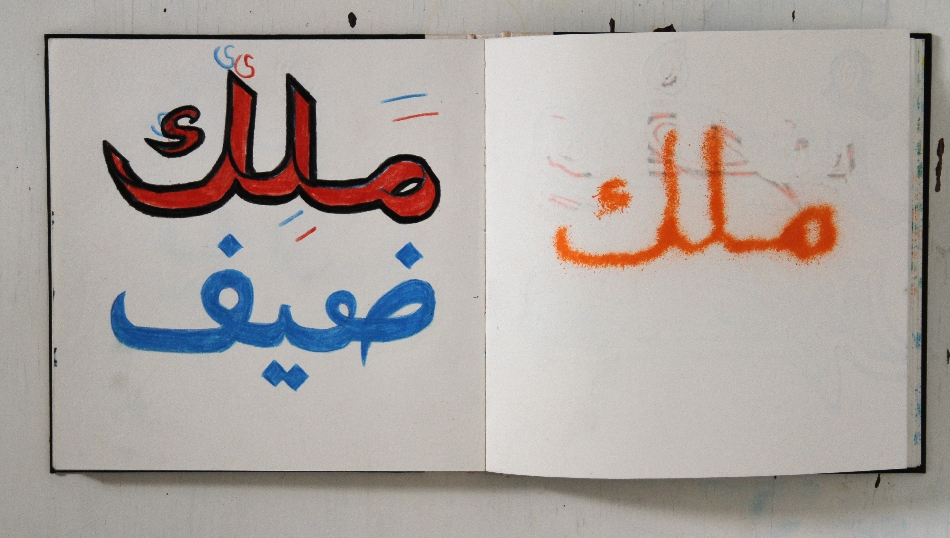 مَلِكٌ
ضعيف
ملك